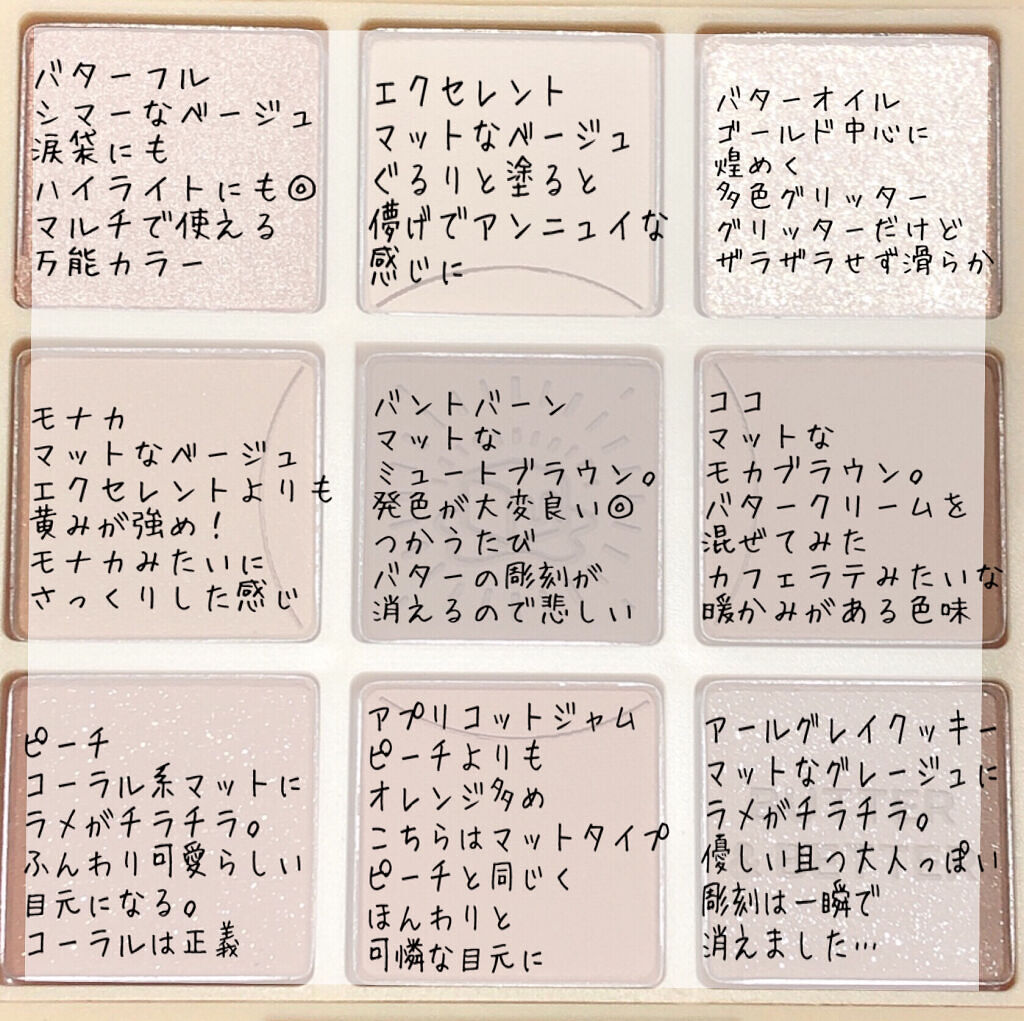 バターフル
シマーなベージュ
涙袋にも
ハイライトにも◎
マルチで使える
万能カラー
エクセレント
マットなベージュ
ぐるりと塗ると
儚げでアンニュイな
感じに
バターオイル
ゴールド中心に
煌めく
多色グリッター
グリッターだけど
ザラザラせず滑らか
モナカ
マットなベージュ
エクセレントよりも
黄みが強め!
モナカみたいに
さっくりした感じ
バントバーン
マットな
ミュートブラウン。
発色が大変良い◎
つかうたび
バターの彫刻が
消えるので悲しい
ココ
マットな
モカブラウン。
バタークリームを
混ぜてみた
カフェラテみたいな
暖かみがある色味
ピーチ
コーラル系マットに
ラメがチラチラ。
ふんわり可愛らしい
目元になる。
コーラルは正義
アプリコットジャム
ピーチよりも
オレンジ多め
こちらはマットタイプ
ピーチと同じく
ほんわりと
可憐な目元に
アールグレイクッキー
マットなグレージュに
ラメがチラチラ。
優しい且つ大人っぽい
彫刻は一瞬で
消えました…